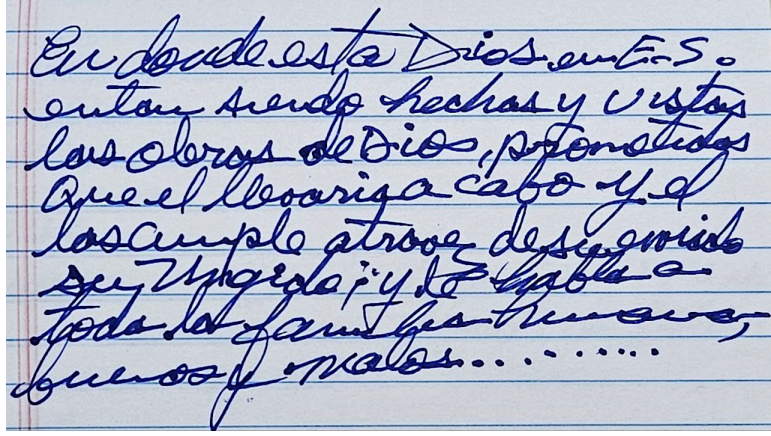 En donde esta Dios en E.S.
entan siendo hechas y vistas
las obras de Dios, prometidas
que el llevaria a cabo y el
las cumple atravez de su enviado
su Ungido; y le habla a
toda la familia humana,
buenos y malos..........